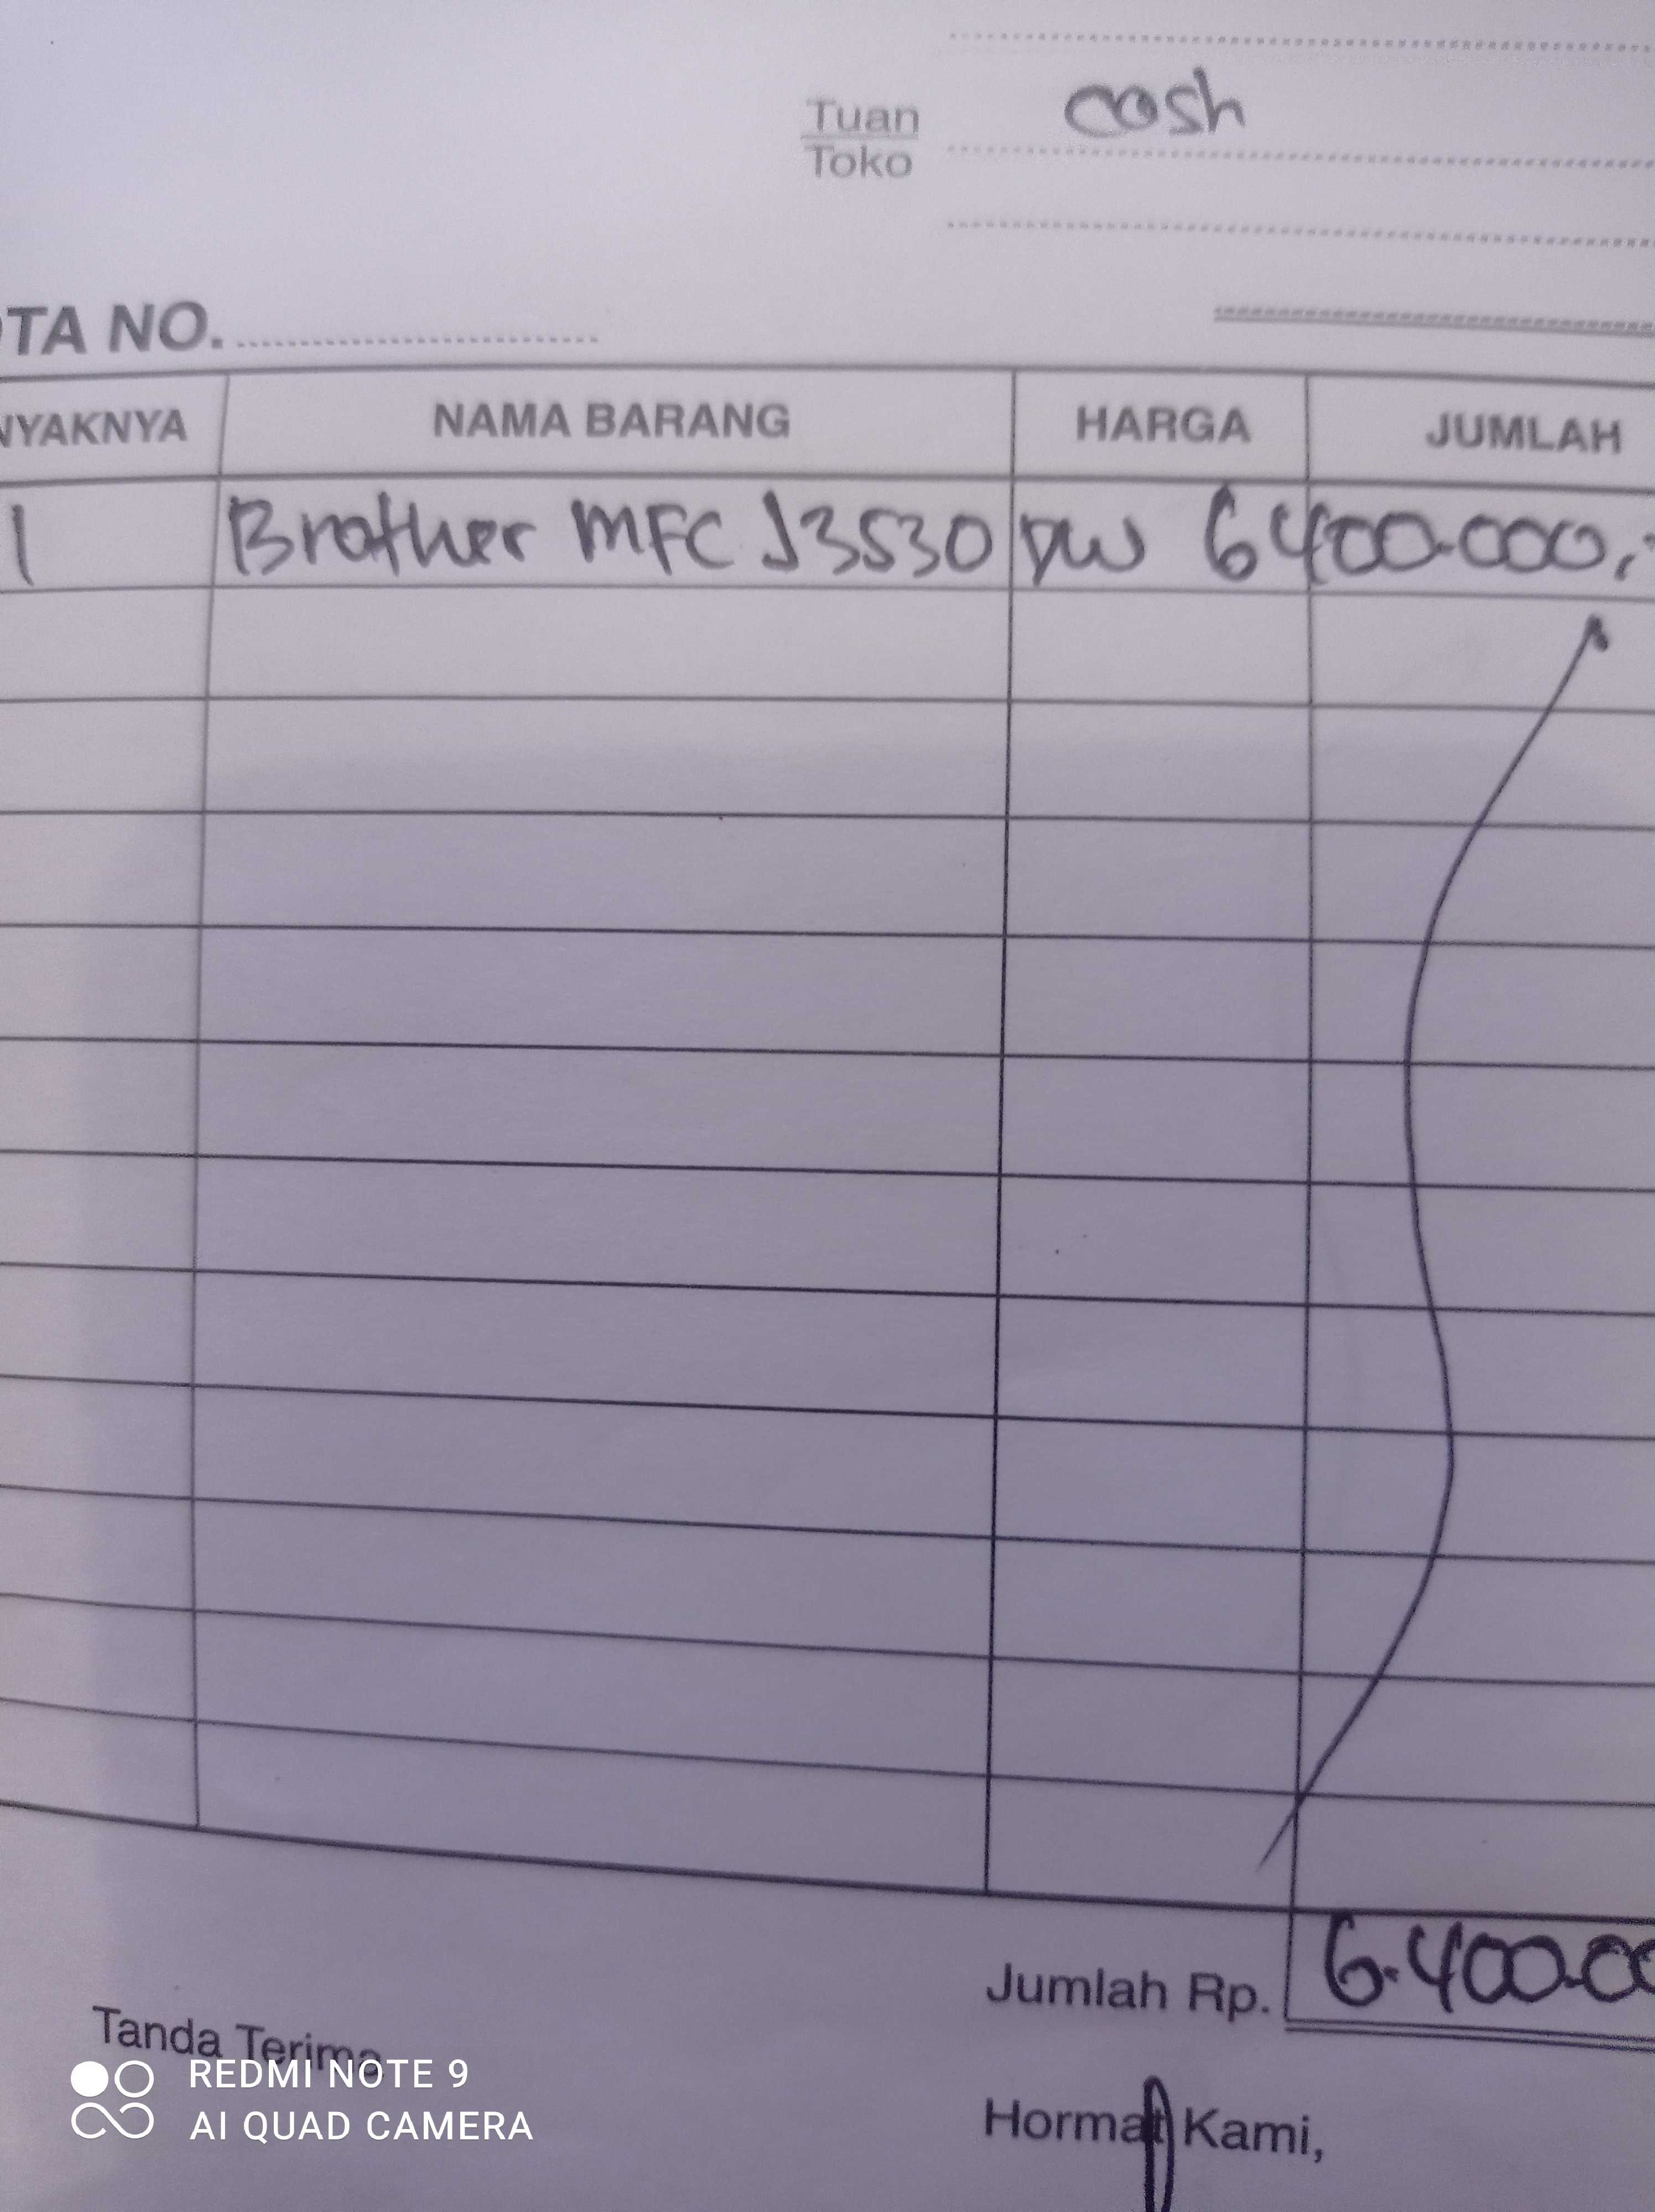 Tuan
Toko
cash
OTA NO.
NYAKNYA NAMA BARANG HARGA JUMLAH
1 Brother MFC J3530 DW 6400.000,-
Jumlah Rp. 6.400.00
Tanda Terima
Hormat Kami,
REDMI NOTE 9
AI QUAD CAMERA